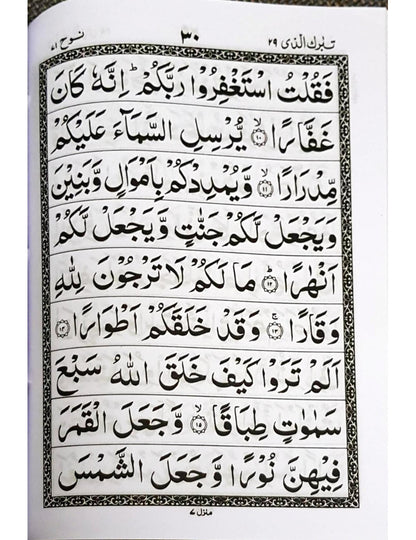 تبٰرك الذی ٢٩ ٣٠ نوح ٧١
فَقُلْتُ اسْتَغْفِرُوْا رَبَّكُمْ ؕ اِنَّهٗ كَانَ
غَفَّارًا ۙ﴿١٠﴾ یُّرْسِلِ السَّمَآءَ عَلَیْكُمْ
مِّدْرَارًا ۙ﴿١١﴾ وَّیُمْدِدْكُمْ بِاَمْوَالٍ وَّبَنِیْنَ
وَیَجْعَلْ لَّكُمْ جَنّٰتٍ وَّیَجْعَلْ لَّكُمْ
اَنْهٰرًا ؕ﴿١٢﴾ مَا لَكُمْ لَا تَرْجُوْنَ لِلّٰهِ
وَقَارًا ۚ﴿١٣﴾ وَقَدْ خَلَقَكُمْ اَطْوَارًا ﴿١٤﴾
اَلَمْ تَرَوْا كَیْفَ خَلَقَ اللّٰهُ سَبْعَ
سَمٰوٰتٍ طِبَاقًا ۙ﴿١٥﴾ وَّجَعَلَ الْقَمَرَ
فِیْهِنَّ نُوْرًا وَّجَعَلَ الشَّمْسَ
منزل ٧